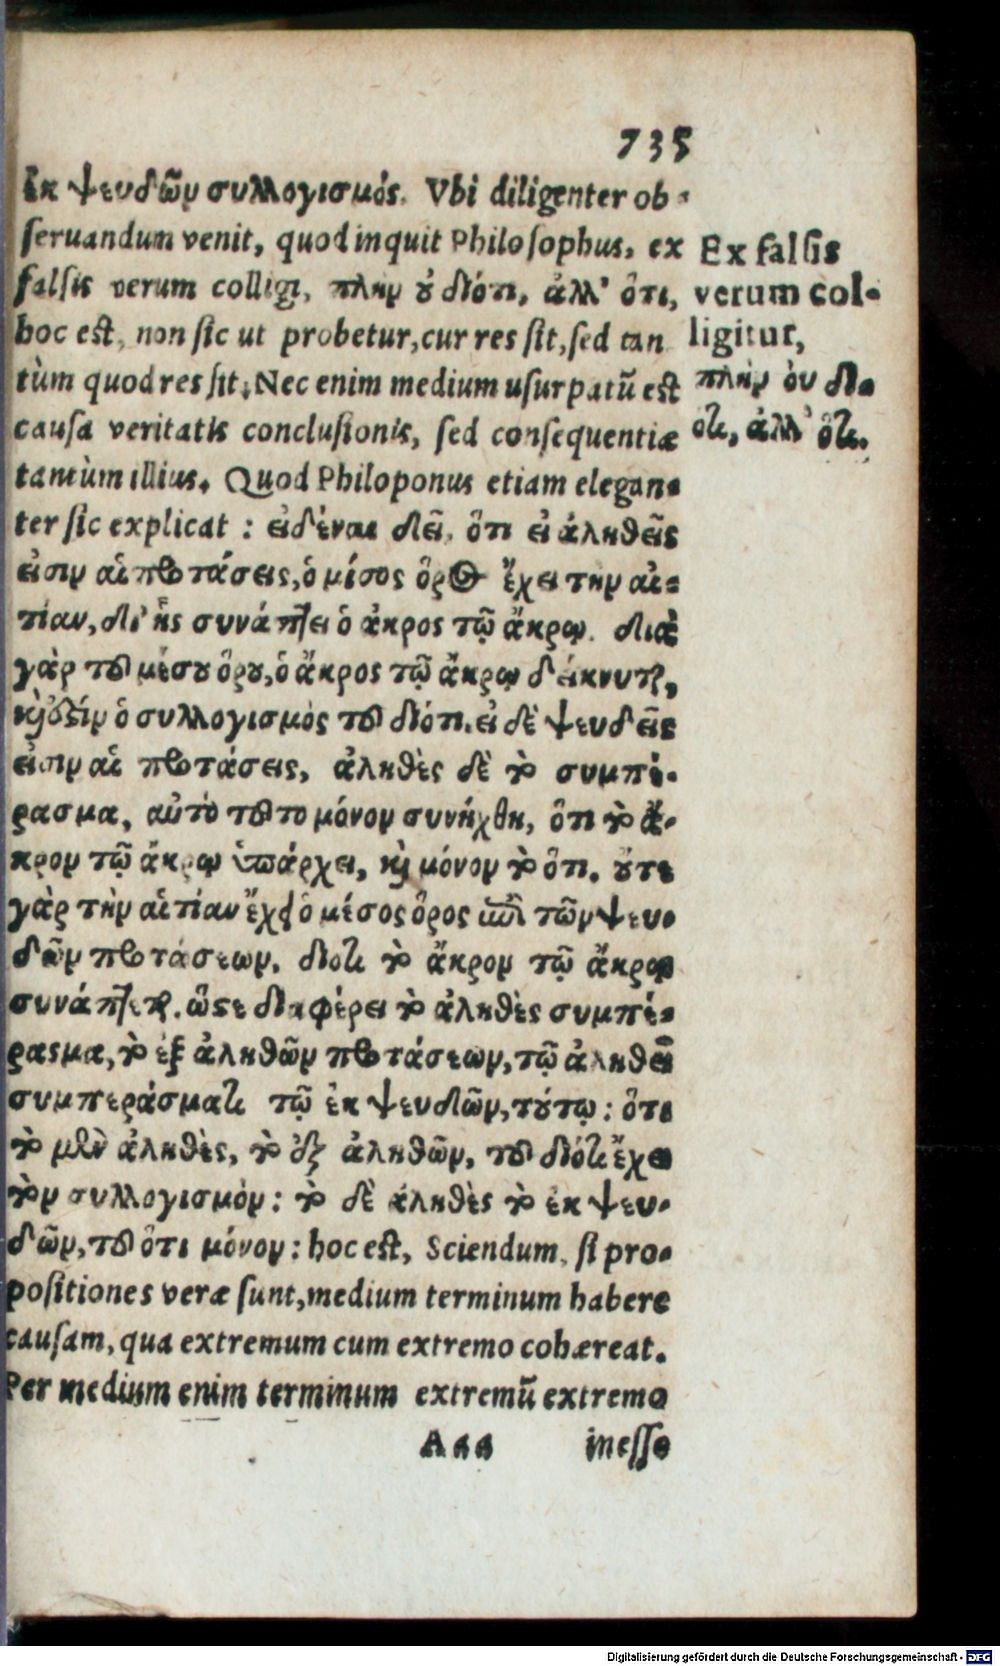 735
ἐκ ψευδῶν συλλογισμός. Vbi diligenter ob-
seruandum venit, quod inquit Philosophus, ex
falsis verum colligi, πλὴν ȣ διότι, ἀλλ' ὅτι,
hoc est, non sic ut probetur, cur res sit, sed tan
tùm quod res sit. Nec enim medium usurpatū est
causa veritatis conclusionis, sed consequentiæ
tantùm illius. Quod Philoponus etiam elegan-
ter sic explicat : εἰδέναι δεῖ, ὅτι εἰ ἀληθεῖς
εἰσιν αἱ προτάσεις, ὁ μέσος ὅρος ἔχει τὴν αἰ-
τίαν, δι' ἧς συνάπτει ὁ ἄκρος τῷ ἄκρῳ. διὰ
γὰρ τοῦ μέσȣ ὅρȣ, ὁ ἄκρος τῷ ἄκρῳ δείκνυται,
καὶ ἔστιν ὁ συλλογισμὸς τοῦ διότι. εἰ δὲ ψευδεῖς
εἰσιν αἱ προτάσεις, ἀληθὲς δὲ τὸ συμπέ-
ρασμα, αὐτὸ τοῦτο μόνον συνήχθη, ὅτι τὸ ἄ-
κρον τῷ ἄκρῳ ὑπάρχει, καὶ μόνον τὸ ὅτι. ȣτε
γὰρ τὴν αἰτίαν ἔχει ὁ μέσος ὅρος ἐπὶ τῶν ψευ-
δῶν προτάσεων, διότι τὸ ἄκρον τῷ ἄκρῳ
συνάπτεται. ὥστε διαφέρει τὸ ἀληθὲς συμπέ-
ρασμα, τὸ ἐξ ἀληθῶν προτάσεων, τῷ ἀληθεῖ
συμπεράσματι τῷ ἐκ ψευδῶν, τȣτῳ : ὅτι
τὸ μὲν ἀληθὲς, τὸ ἐξ ἀληθῶν, τοῦ διότι ἔχει
τὸν συλλογισμὸν : τὸ δὲ ἀληθὲς τὸ ἐκ ψευ-
δῶν, τοῦ ὅτι μόνον : hoc est, Sciendum, si pro-
positiones veræ sunt, medium terminum habere
causam, qua extremum cum extremo cohæreat.
Per medium enim terminum extremū extremo
Aaa inesse
Ex falsis
verum col-
ligitur,
πλὴν ὀυ δι-
ότι, ἀλλ' ὅτι.
Digitalisierung gefördert durch die Deutsche Forschungsgemeinschaft - DFG